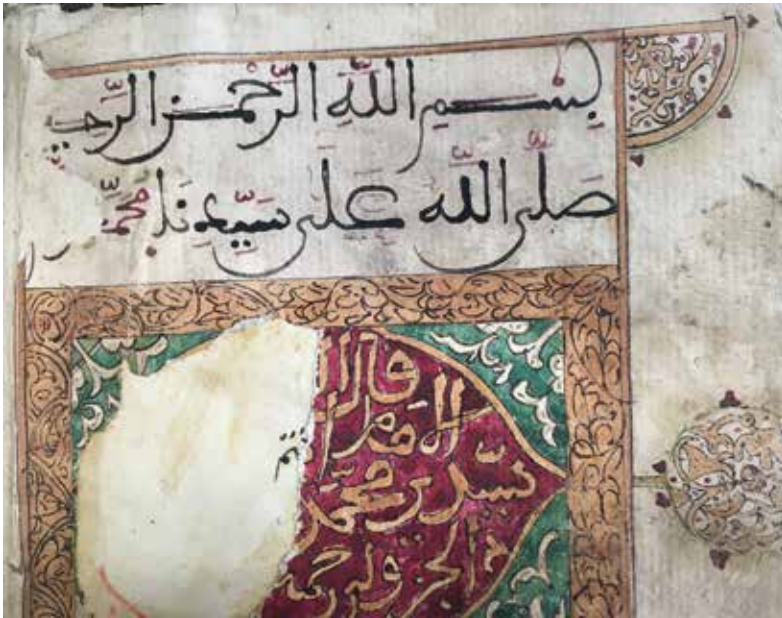 بِسْمِ اللَّهِ الرَّحْمَنِ الرَّحِي
صَلَّى اللَّهُ عَلَى سَيِّدِنَا مُحَمَّ
قال ا
الامام
بن محمد
الجزولي رحمه